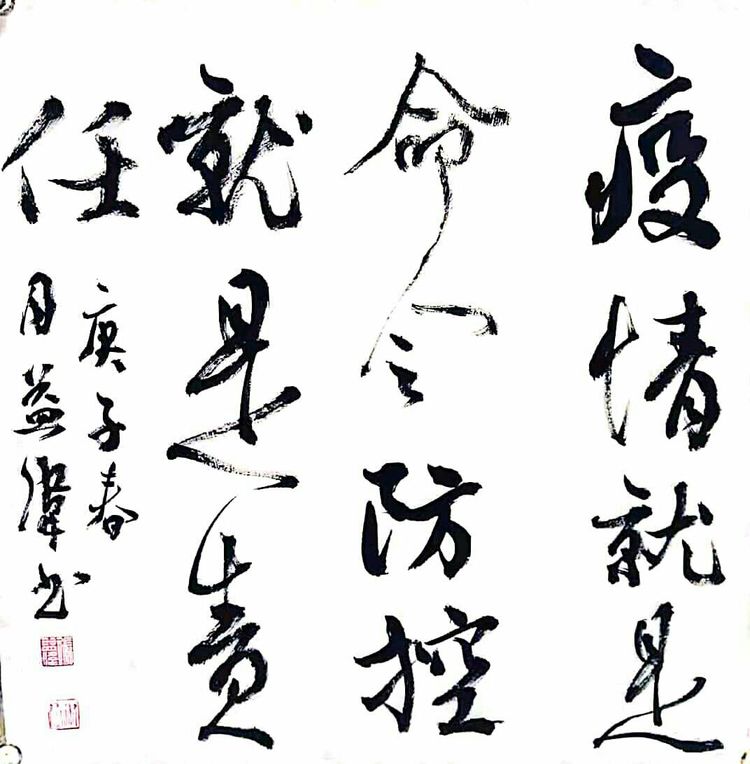 疫情就是
命令防控
就是责
任
庚子春
周益伟书